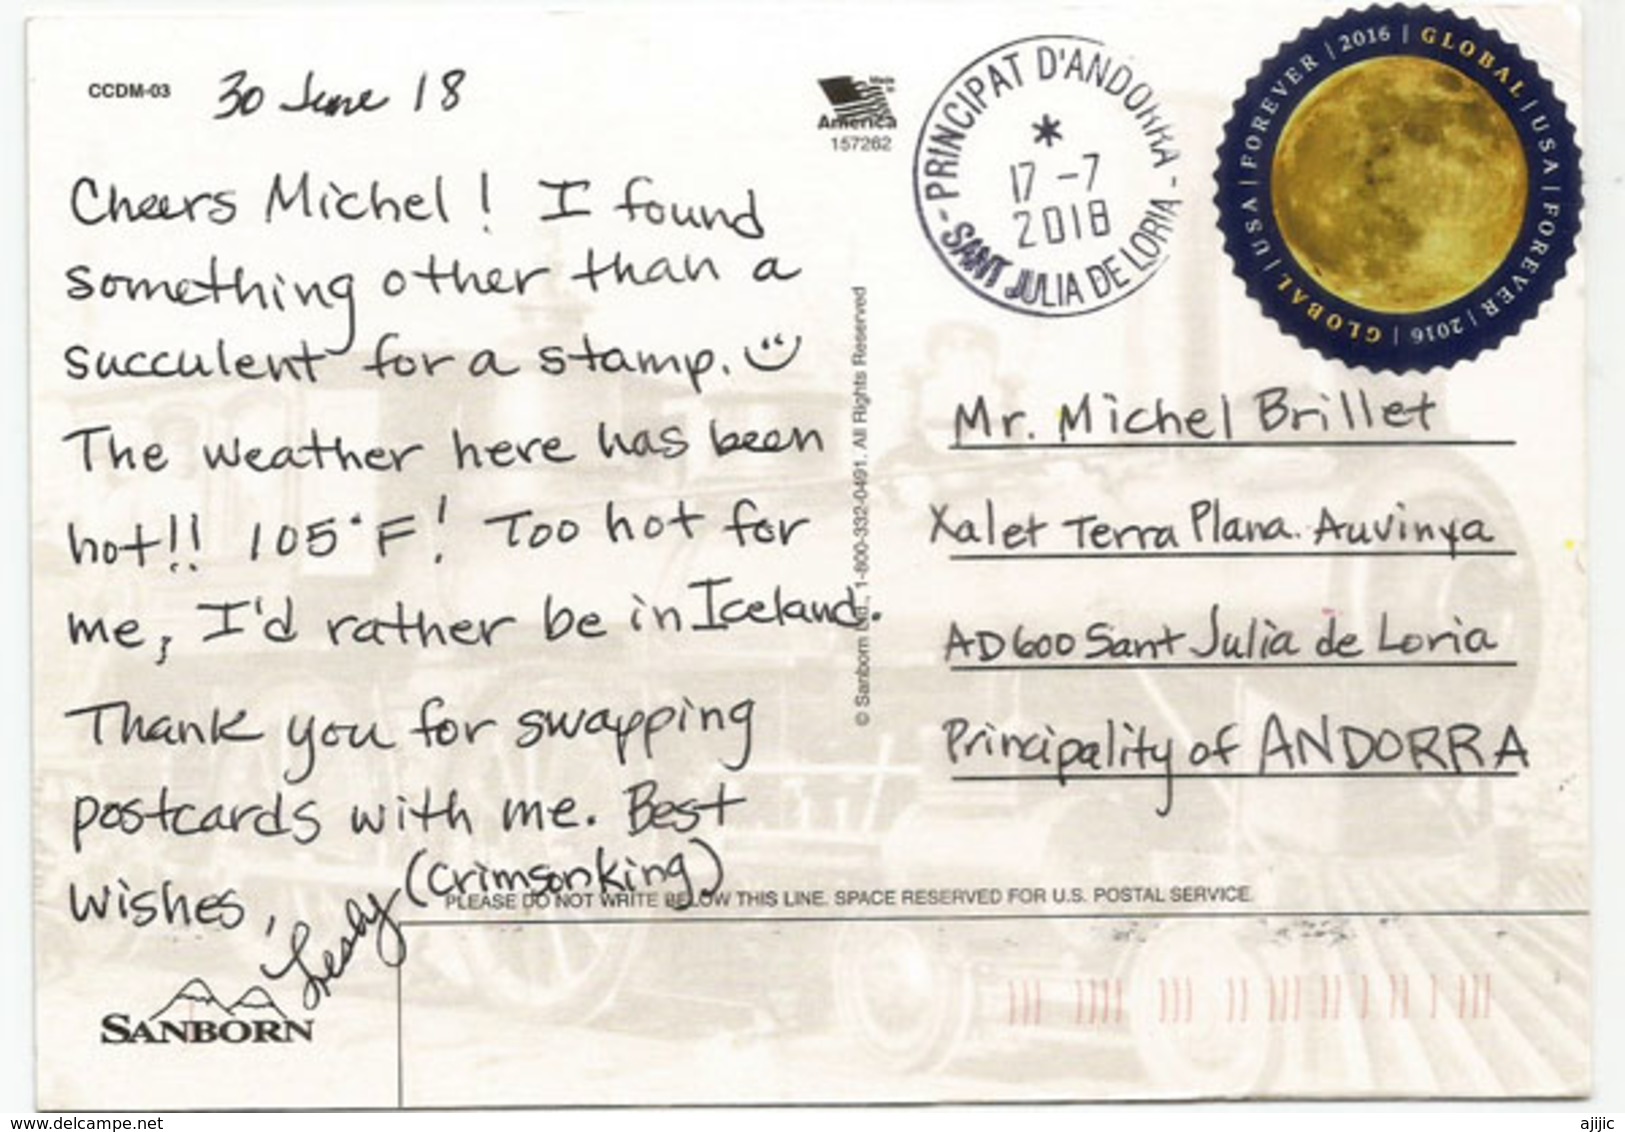 CCDM-03
30 June 18
Made in
America
157262
Cheers Michel! I found
something other than a
succulent for a stamp.
The weather here has been
hot!! 105°F! Too hot for
me, I'd rather be in Iceland.
Thank you for swapping
postcards with me. Best
Wishes,
Lesly (Crimsonking)
SANBORN
© Sanborn Ltd., 1-800-332-0491. All Rights Reserved
- PRINCIPAT D'ANDORRA -
17 -7
2018
SANT JULIA DE LORIA
GLOBAL | USA | FOREVER | 2016 | GLOBAL | USA | FOREVER | 2016 |
Mr. Michel Brillet
Xalet Terra Plana. Auvinya
AD600 Sant Julia de Loria
Principality of ANDORRA
PLEASE DO NOT WRITE BELOW THIS LINE. SPACE RESERVED FOR U.S. POSTAL SERVICE.
www.delcampe.net
ajijic